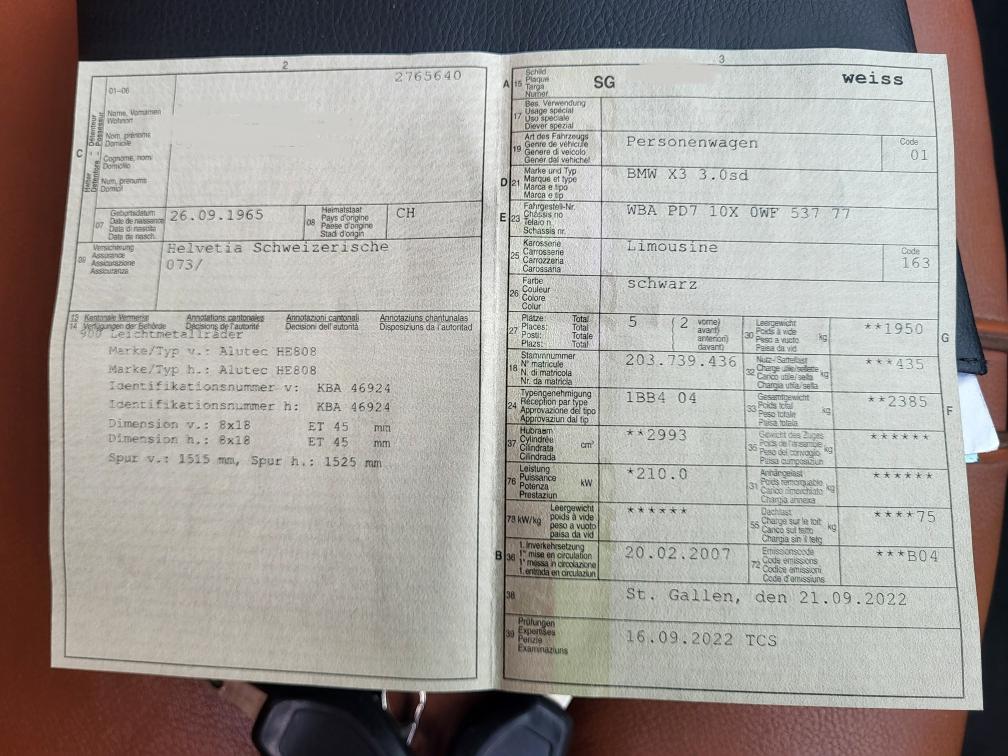 2
2765640
01-06
Name, Vornamen
Wohnort
Nom, prénoms
Domicile
Cognome, nomi
Domicilio
Num, prenums
Domicil
C
07
Geburtsdatum
Date de naissance
Data di nascita
Data da nasch.
26.09.1965
08
Heimatstaat
Pays d'origine
Paese d'origine
Stadi d'origin
CH
09
Versicherung
Assurance
Assicurazione
Assicuranza
Helvetia Schweizerische
073/
13 Kantonale Vermerke
14 Verfügungen der Behörde
Annotations cantonales
Décisions de l'autorité
Annotazioni cantonali
Decisioni dell'autorità
Annotaziuns chantunalas
Disposiziuns da l'autoritad
900 Leichtmetallräder
Marke/Typ v.: Alutec HE808
Marke/Typ h.: Alutec HE808
Identifikationsnummer v: KBA 46924
Identifikationsnummer h: KBA 46924
Dimension v.: 8x18 ET 45 mm
Dimension h.: 8x18 ET 45 mm
Spur v.: 1515 mm, Spur h.: 1525 mm
3
A 15
Schild
Plaque
Targa
Numer
SG
weiss
17
Bes. Verwendung
Usage spécial
Uso speciale
Diever spezial
19
Art des Fahrzeugs
Genre de véhicule
Genere di veicolo
Gener dal vehichel
Personenwagen
Code
01
D 21
Marke und Typ
Marque et type
Marca e tipo
Marca e tip
BMW X3 3.0sd
E 23
Fahrgestell-Nr.
Châssis no
Telaio n.
Schassis nr.
WBA PD7 10X 0WF 537 77
25
Karosserie
Carrosserie
Carrozzeria
Carossaria
Limousine
Code
163
26
Farbe
Couleur
Colore
Colur
schwarz
27
Plätze: Total
Places: Total
Posti: Totale
Plazs: Total
5 (2 vorne)
avant)
anteriori)
davant)
30
Leergewicht
Poids à vide
Peso a vuoto
Paisa da vid
kg
**1950
G
18
Stammnummer
N° matricule
N. di matricola
Nr. da matricla
203.739.436
32
Nutz-/Sattellast
Charge utile/sellette
Carico utile/sella
Chargia utila/sella
kg
***435
24
Typengenehmigung
Réception par type
Approvazione del tipo
Approvaziun dal tip
1BB4 04
33
Gesamtgewicht
Poids total
Peso totale
Paisa totala
kg
**2385
F
37
Hubraum
Cylindrée
Cilindrata
Cilindrada
cm³
**2993
35
Gewicht des Zuges
Poids de l'ensemble
Peso del convoglio
Paisa cumposiziun
kg
******
76
Leistung
Puissance
Potenza
Prestaziun
kW
*210.0
31
Anhängelast
Poids remorquable
Carico rimorchiato
Chargia annexa
kg
******
78 kW/kg
Leergewicht
poids à vide
peso a vuoto
paisa da vid
******
55
Dachlast
Charge sur le toit
Carico sul tetto
Chargia sin il tetg
kg
****75
B 36
1. Inverkehrsetzung
1re mise en circulation
1a messa in circolazione
1. entrada en circulaziun
20.02.2007
72
Emissionscode
Code émissions
Codice emissioni
Code d'emissiuns
***B04
38
St. Gallen, den 21.09.2022
39
Prüfungen
Expertises
Perizie
Examinaziuns
16.09.2022 TCS